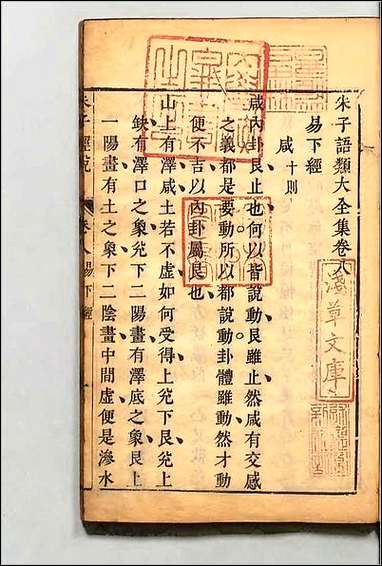 朱子語類大全集卷八
易下經
咸十則
咸內卦艮止也何以皆說動艮雖止然咸有交感
之義都是要動所以都說動卦體雖動然才動
便不吉以內卦屬艮也
山上有澤咸土若不虛如何受得上兌下艮兌上
缺有澤口之象兌下二陽畫有澤底之象艮上
一陽畫有土之象下二陰畫中間虛便是滲水
卷八 易下經
淺草文庫